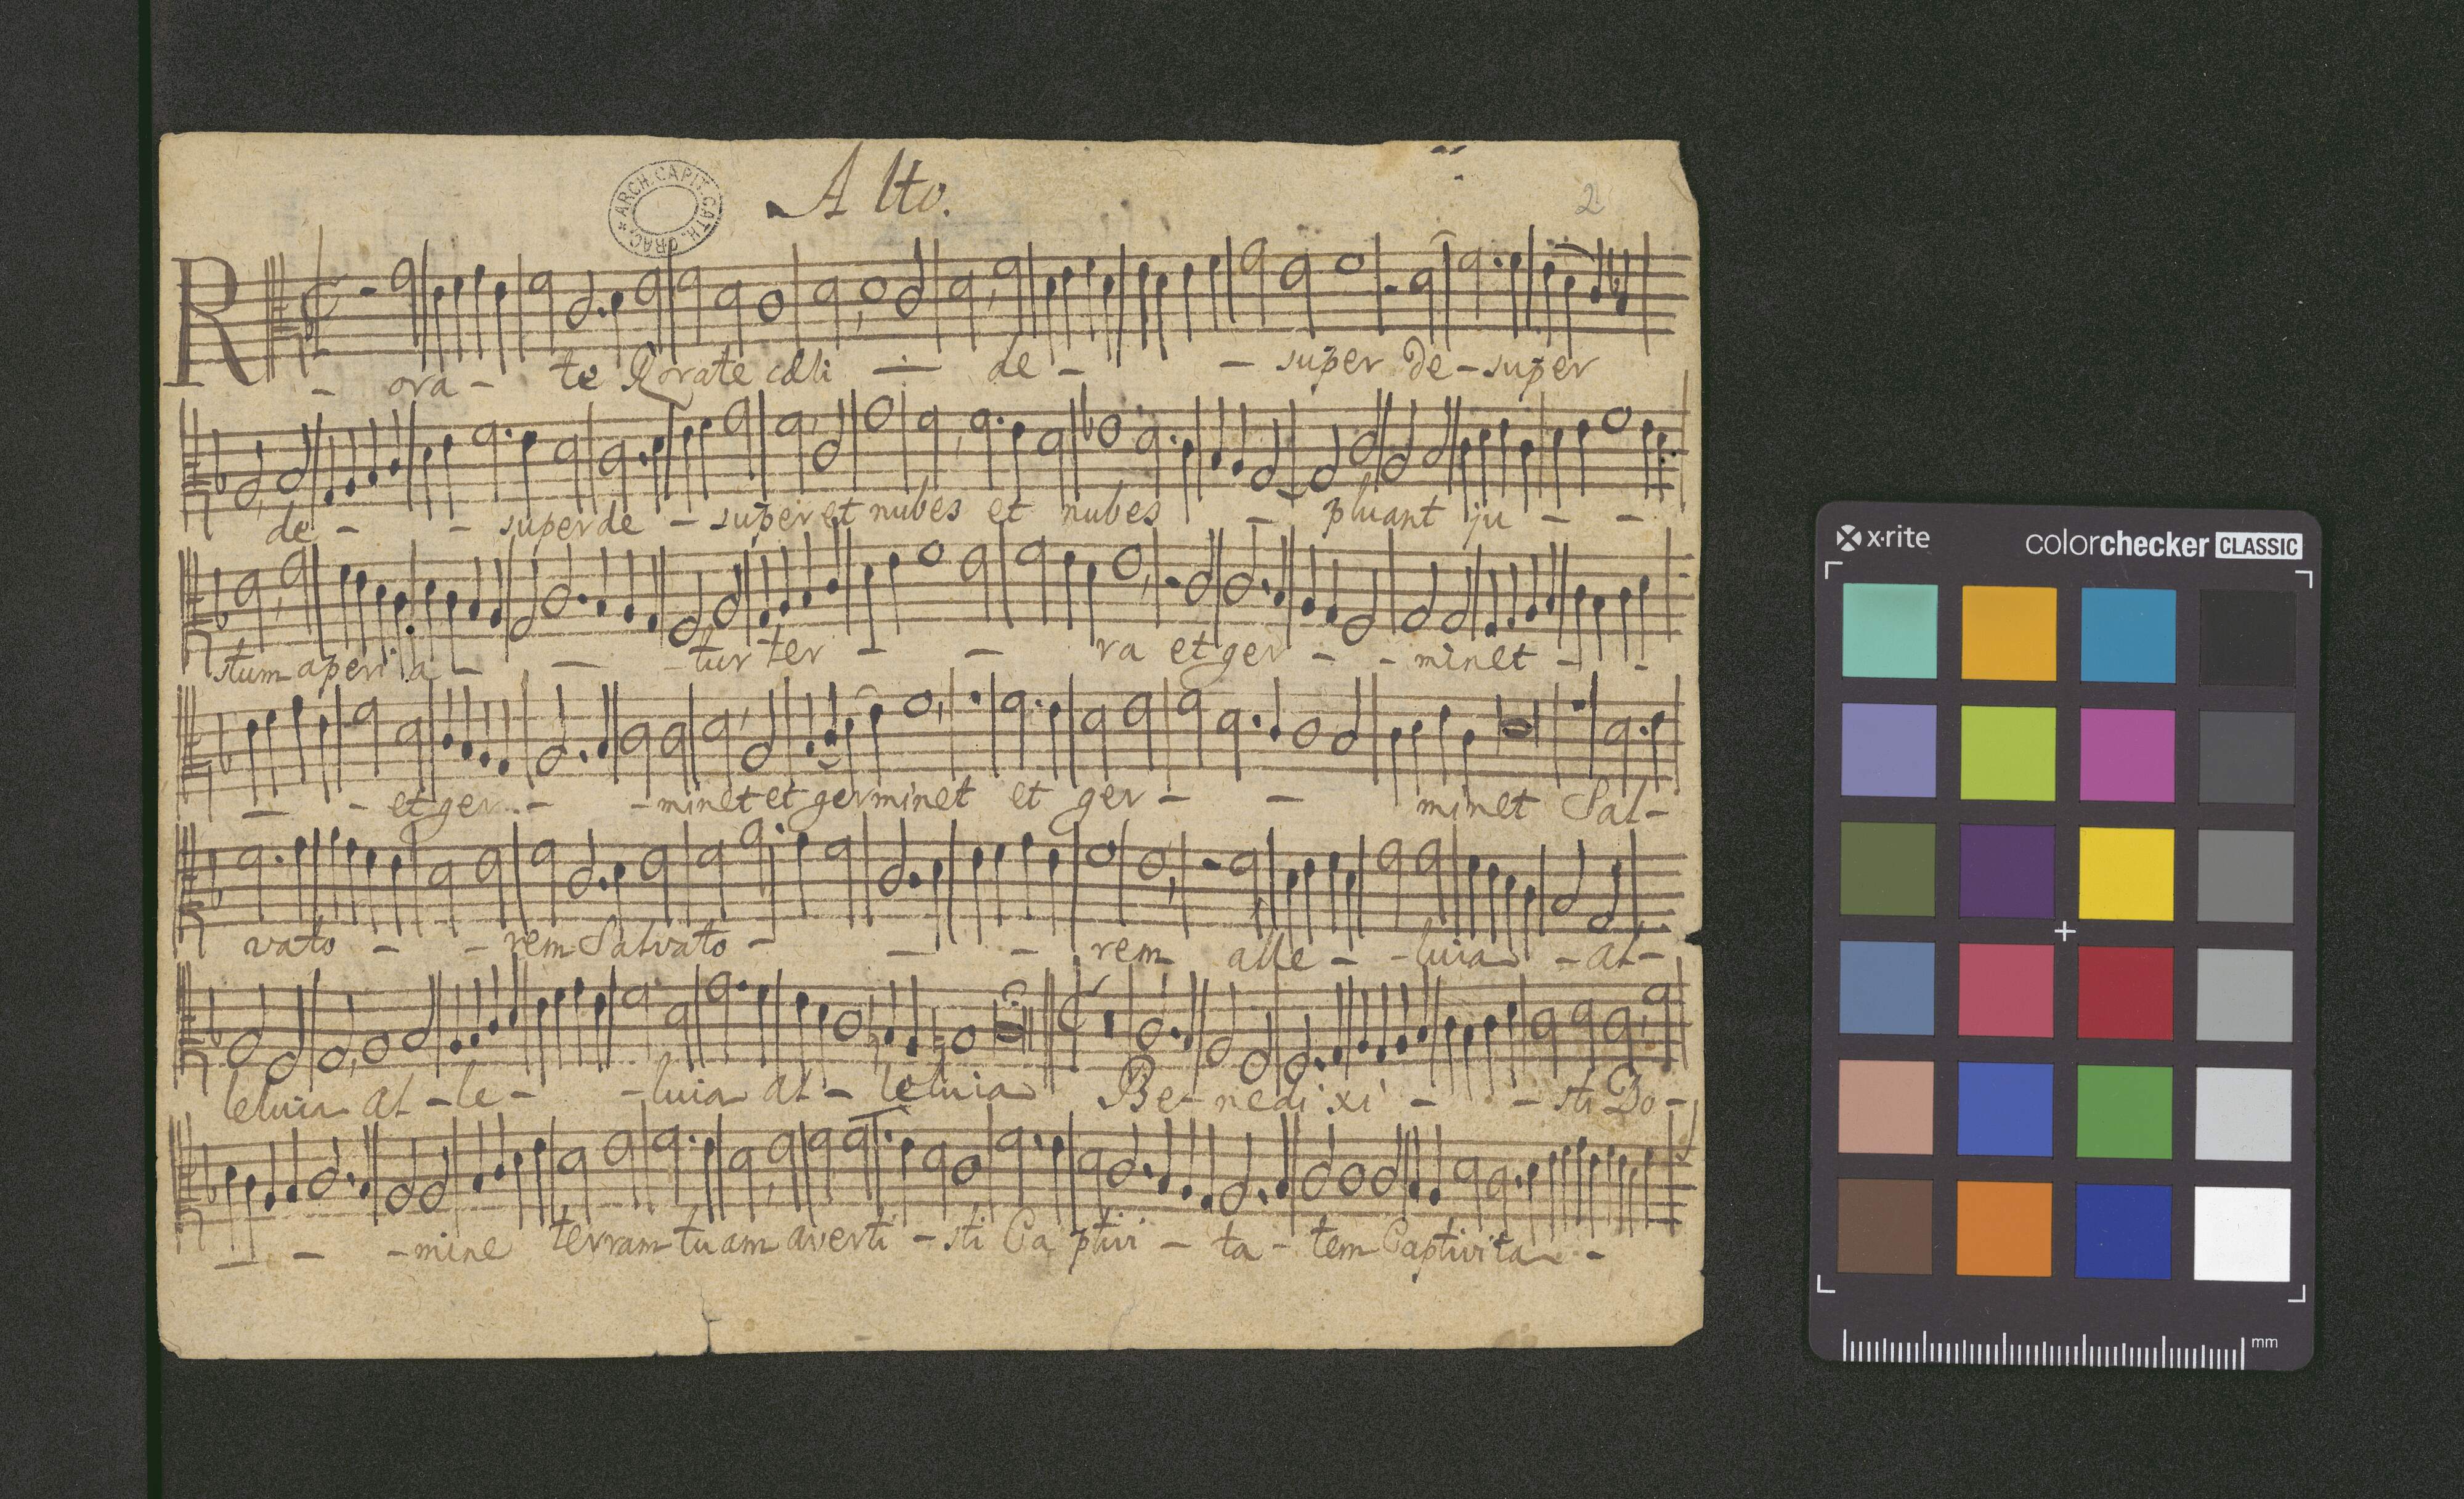 Alto.
ARCH. CAPIT. CATH. CRAC.
2
R - ora - te Rorate cæli - de - - super De - super
de - - super de - super et nubes et nubes - pluant ju - -
stum aperia - - - tur ter - - ra et ger - - minet - -
- - et ger - - minet et germinet et ger - - minet Sal -
vato - - rem Salvato - - - rem alle - - luia - al -
leluia al - le - - luia al - leluia Be - nedixi - - sti Do -
- - - mine terram tuam averti - sti Captivi - ta - tem Captivita -
x·rite
colorchecker CLASSIC
mm